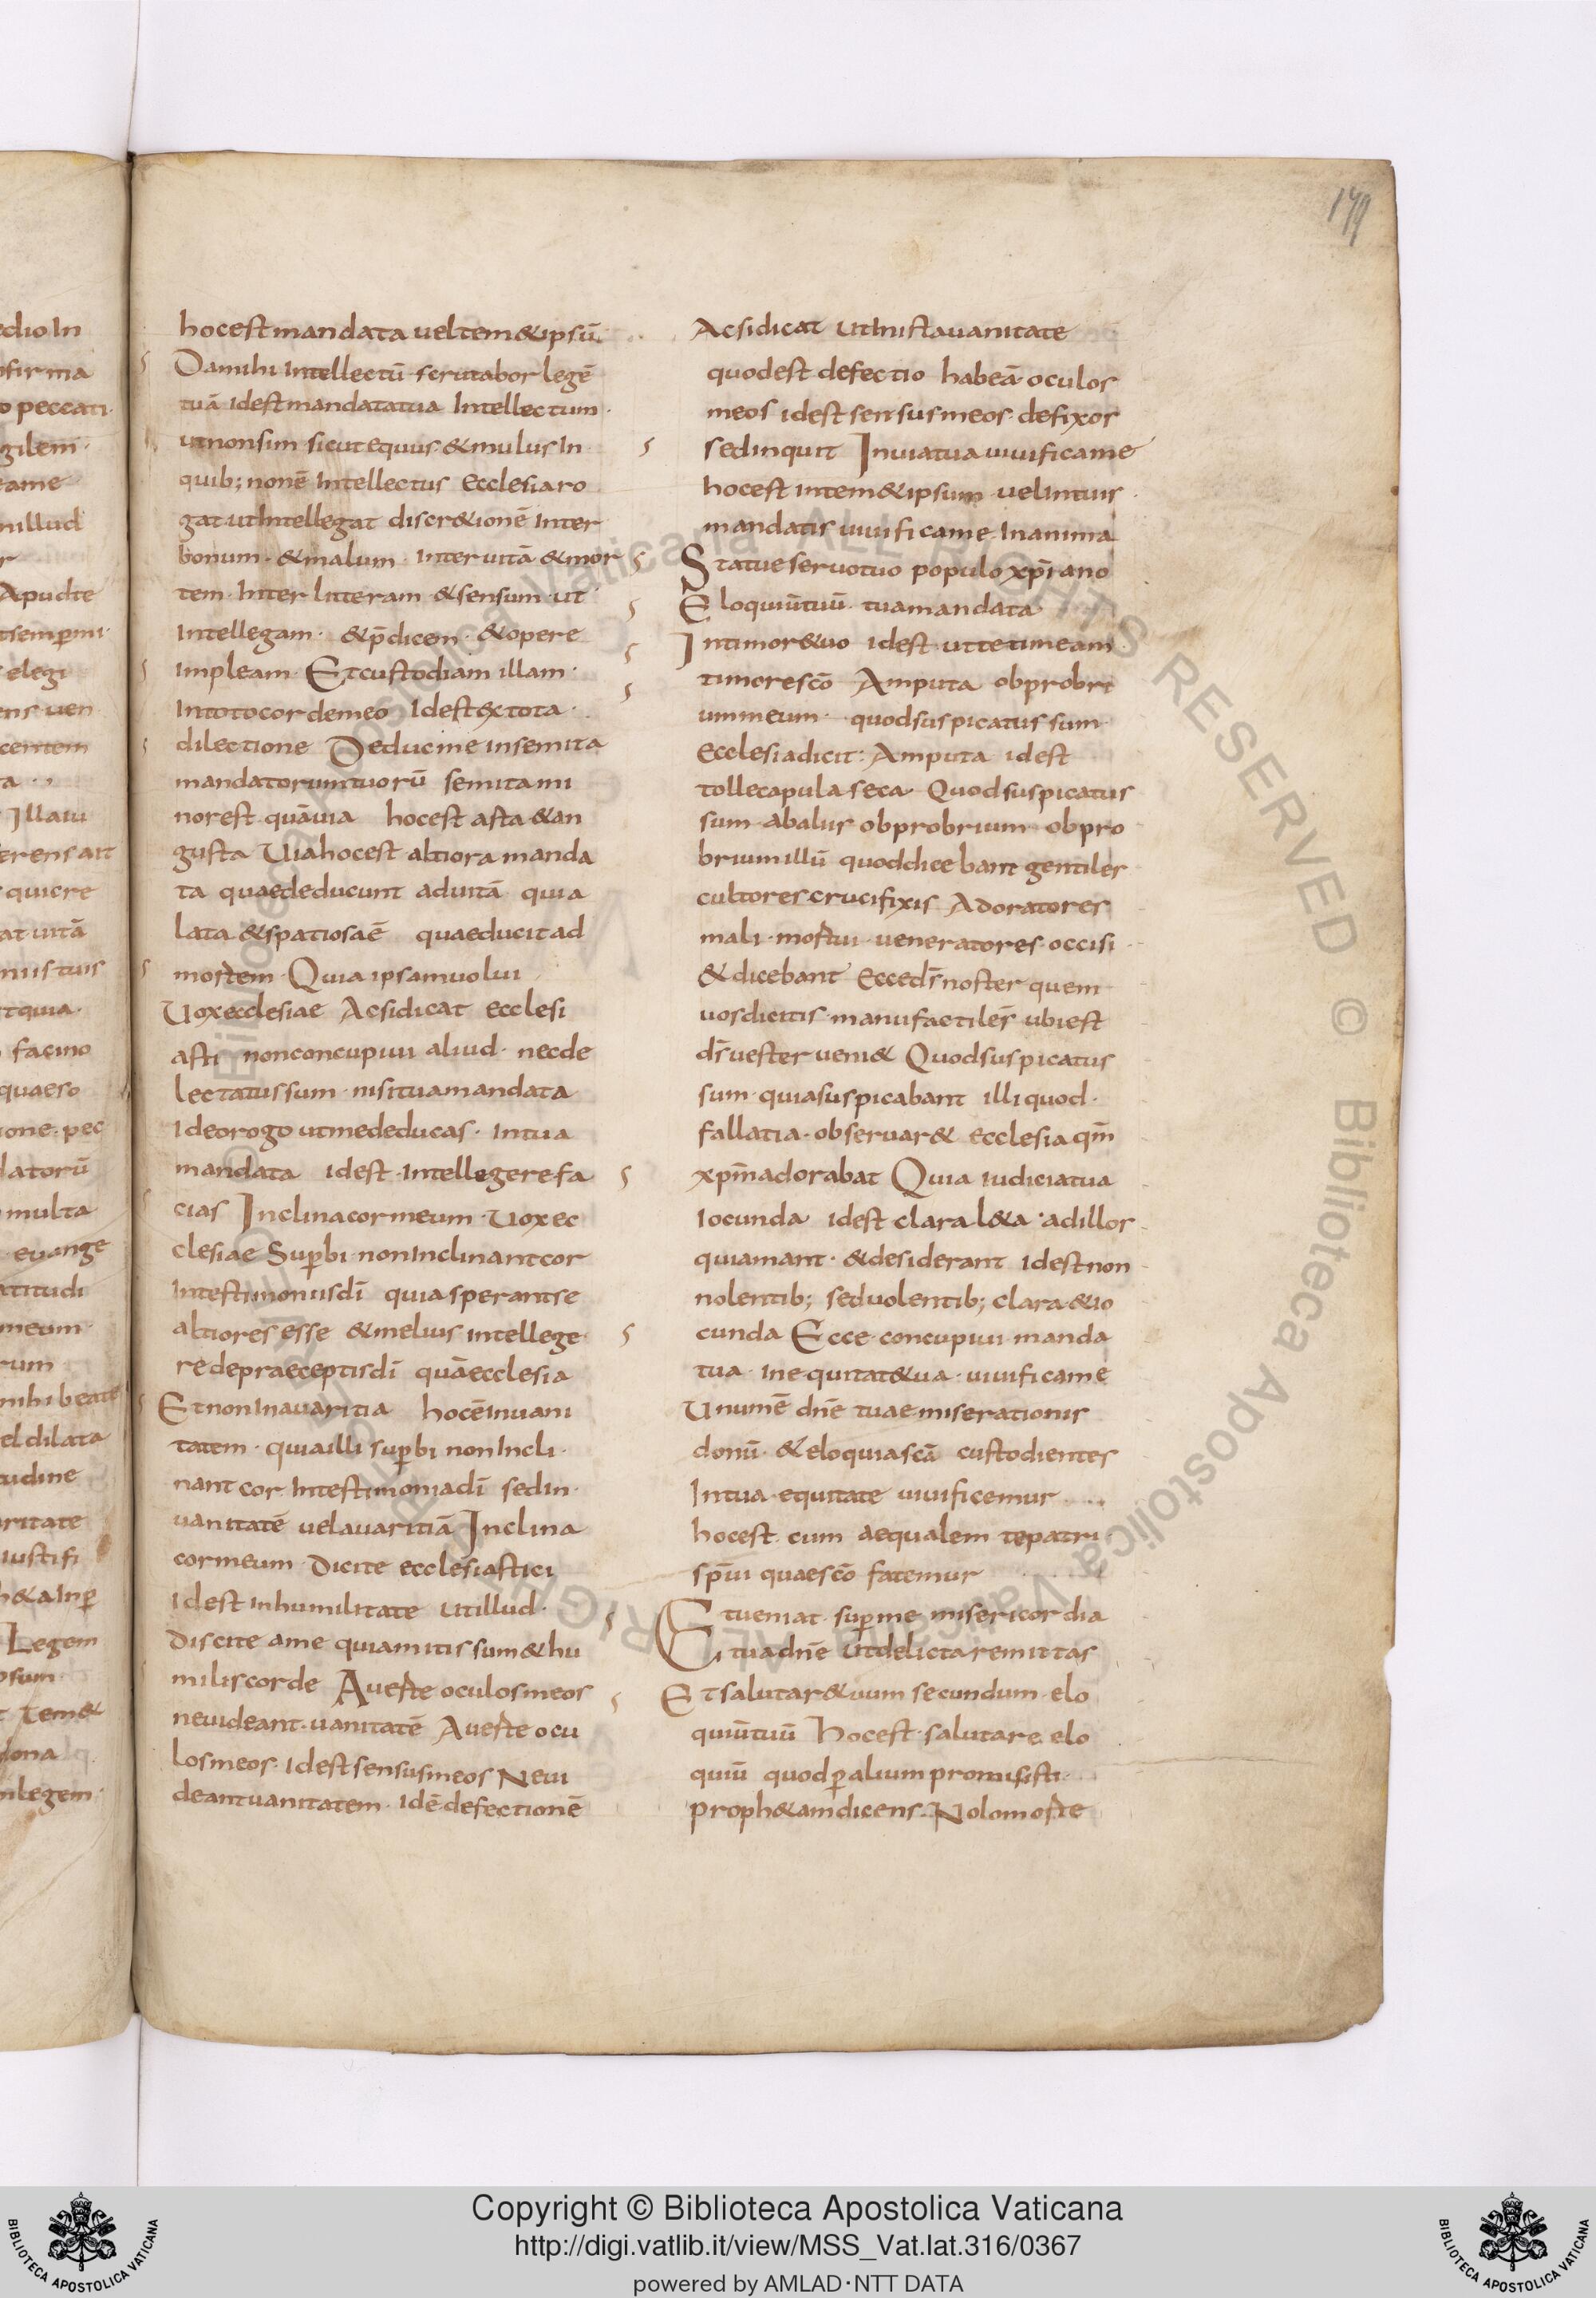 179
hocest mandata uel tem&ipsū
Damihi Intellectū scrutabor legē
tuā idest mandatatua Intellectum
utnonsim sicut equus &mulus In
quib; nonē Intellectus Ecclesia ro
gat utIntellegat discr&ionē Inter
bonum &malum Inter uitā &mor
tem Inter litteram &sensum ut
Intellegam &p̄dicem &opere
Impleam Etcustodiam illam
Intotocordemeo Idest extota
dilectione Deducme insemita
mandatorumtuorū semitami
norest quāuia hocest asta &an
gusta Uiahocest altiora manda
ta quaededucunt aduitā quia
lata &spatiosaē quaeducit ad
mortem Quia ipsamuolui
Uoxecclesiae Acsidicat ecclesi
asti nonconcupiui aliud necde
lectatussum nisituamandata
Ideorogo utmededucas Intua
mandata idest Intellegere fa
cias Inclinacormeum Uox ec
clesiae Sup̄bi nonInclinantcor
Intestimoniisdī quia sperantse
altiores esse &melius intellege
re depraeceptisdī quāecclesia
EtnonInauaritia hocēInuani
tatem quiailli sup̄bi nonIncli
nant cor Intestimoniadī sedin
uanitatē uelauaritiā Inclina
cormeum Dicite ecclesiastici
Idest inhumilitate utillud
Discite ame quiamitis sum&hu
miliscorde Auerte oculosmeos
neuideant uanitatē Auerte ocu
losmeos Idest sensusmeos Neui
deantuanitatem Idē defectionē
Acsidicat utInistauanitate
quodest defectio habeā oculos
meos idest sensusmeos defixos
sedinquit Inuiatua uiuificame
hocest intem&ipsum uelIntuis
mandatis uiuificame Inanima
Statueseruotuo populo xp̄iano
Eloquiūtuū tuamandata
Intimor&uo idest uttetimeam
timorescō Amputa obprobri
ummeum quodsuspicatus sum
Ecclesiadicit: Amputa idest
tollecapula seca Quodsuspicatus
sum abalus obprobrium obpro
briumillū quoddicebant gentiles
cultores crucifixis Adoratores
mali mortui ueneratores occisi
&dicebant Eccedr̄noster quem
uosdicitis manufactiles ubiest
dr̄uester ueni& Quodsuspicatus
sum quiasuspicabant illi quod
fallatia obseruar& ecclesia qm̄
xpm̄adorabat Quia iudiciatua
Iocunda idest clara l&a adillos
quiamant &desiderant idestnon
nolentib; seduolentib; clara &io
cunda Ecce concupiui manda
tua inequitat&ua uiuificame
Unumē dn̄e tuae miserationis
donū &eloquiascā custodientes
Intua equitate uiuificemur
hocest cum aequalem tepatri
sp̄ui quaescō fatemur
Etueniat sup̄me misericordia
tuadn̄e Utdelictaremittas
Etsalutar&uum secundum elo
quiūtuū hocest salutare elo
quiū quodp̄alium promisisti
proph&amdicens Nolomorte
edioIn
nfirma
o peccati
gilem
ame
nillud
r
Apudte
tsemp̄mi
elegi
ens uen
centem
ta
Illaui
erens ait
quiere
atuitā
niistuis
tquia
facino
quaeso
ione pec
latorū
multa
euange
atitudi
meum
rum
mihi beate
eldilata
tudine
aritate
iustifi
h&aInp̄
Legem
psum
tem&
dona
mlegem
Copyright © Biblioteca Apostolica Vaticana
http://digi.vatlib.it/view/MSS_Vat.lat.316/0367
powered by AMLAD·NTT DATA
BIBLIOTECA APOSTOLICA VATICANA
BIBLIOTECA APOSTOLICA VATICANA